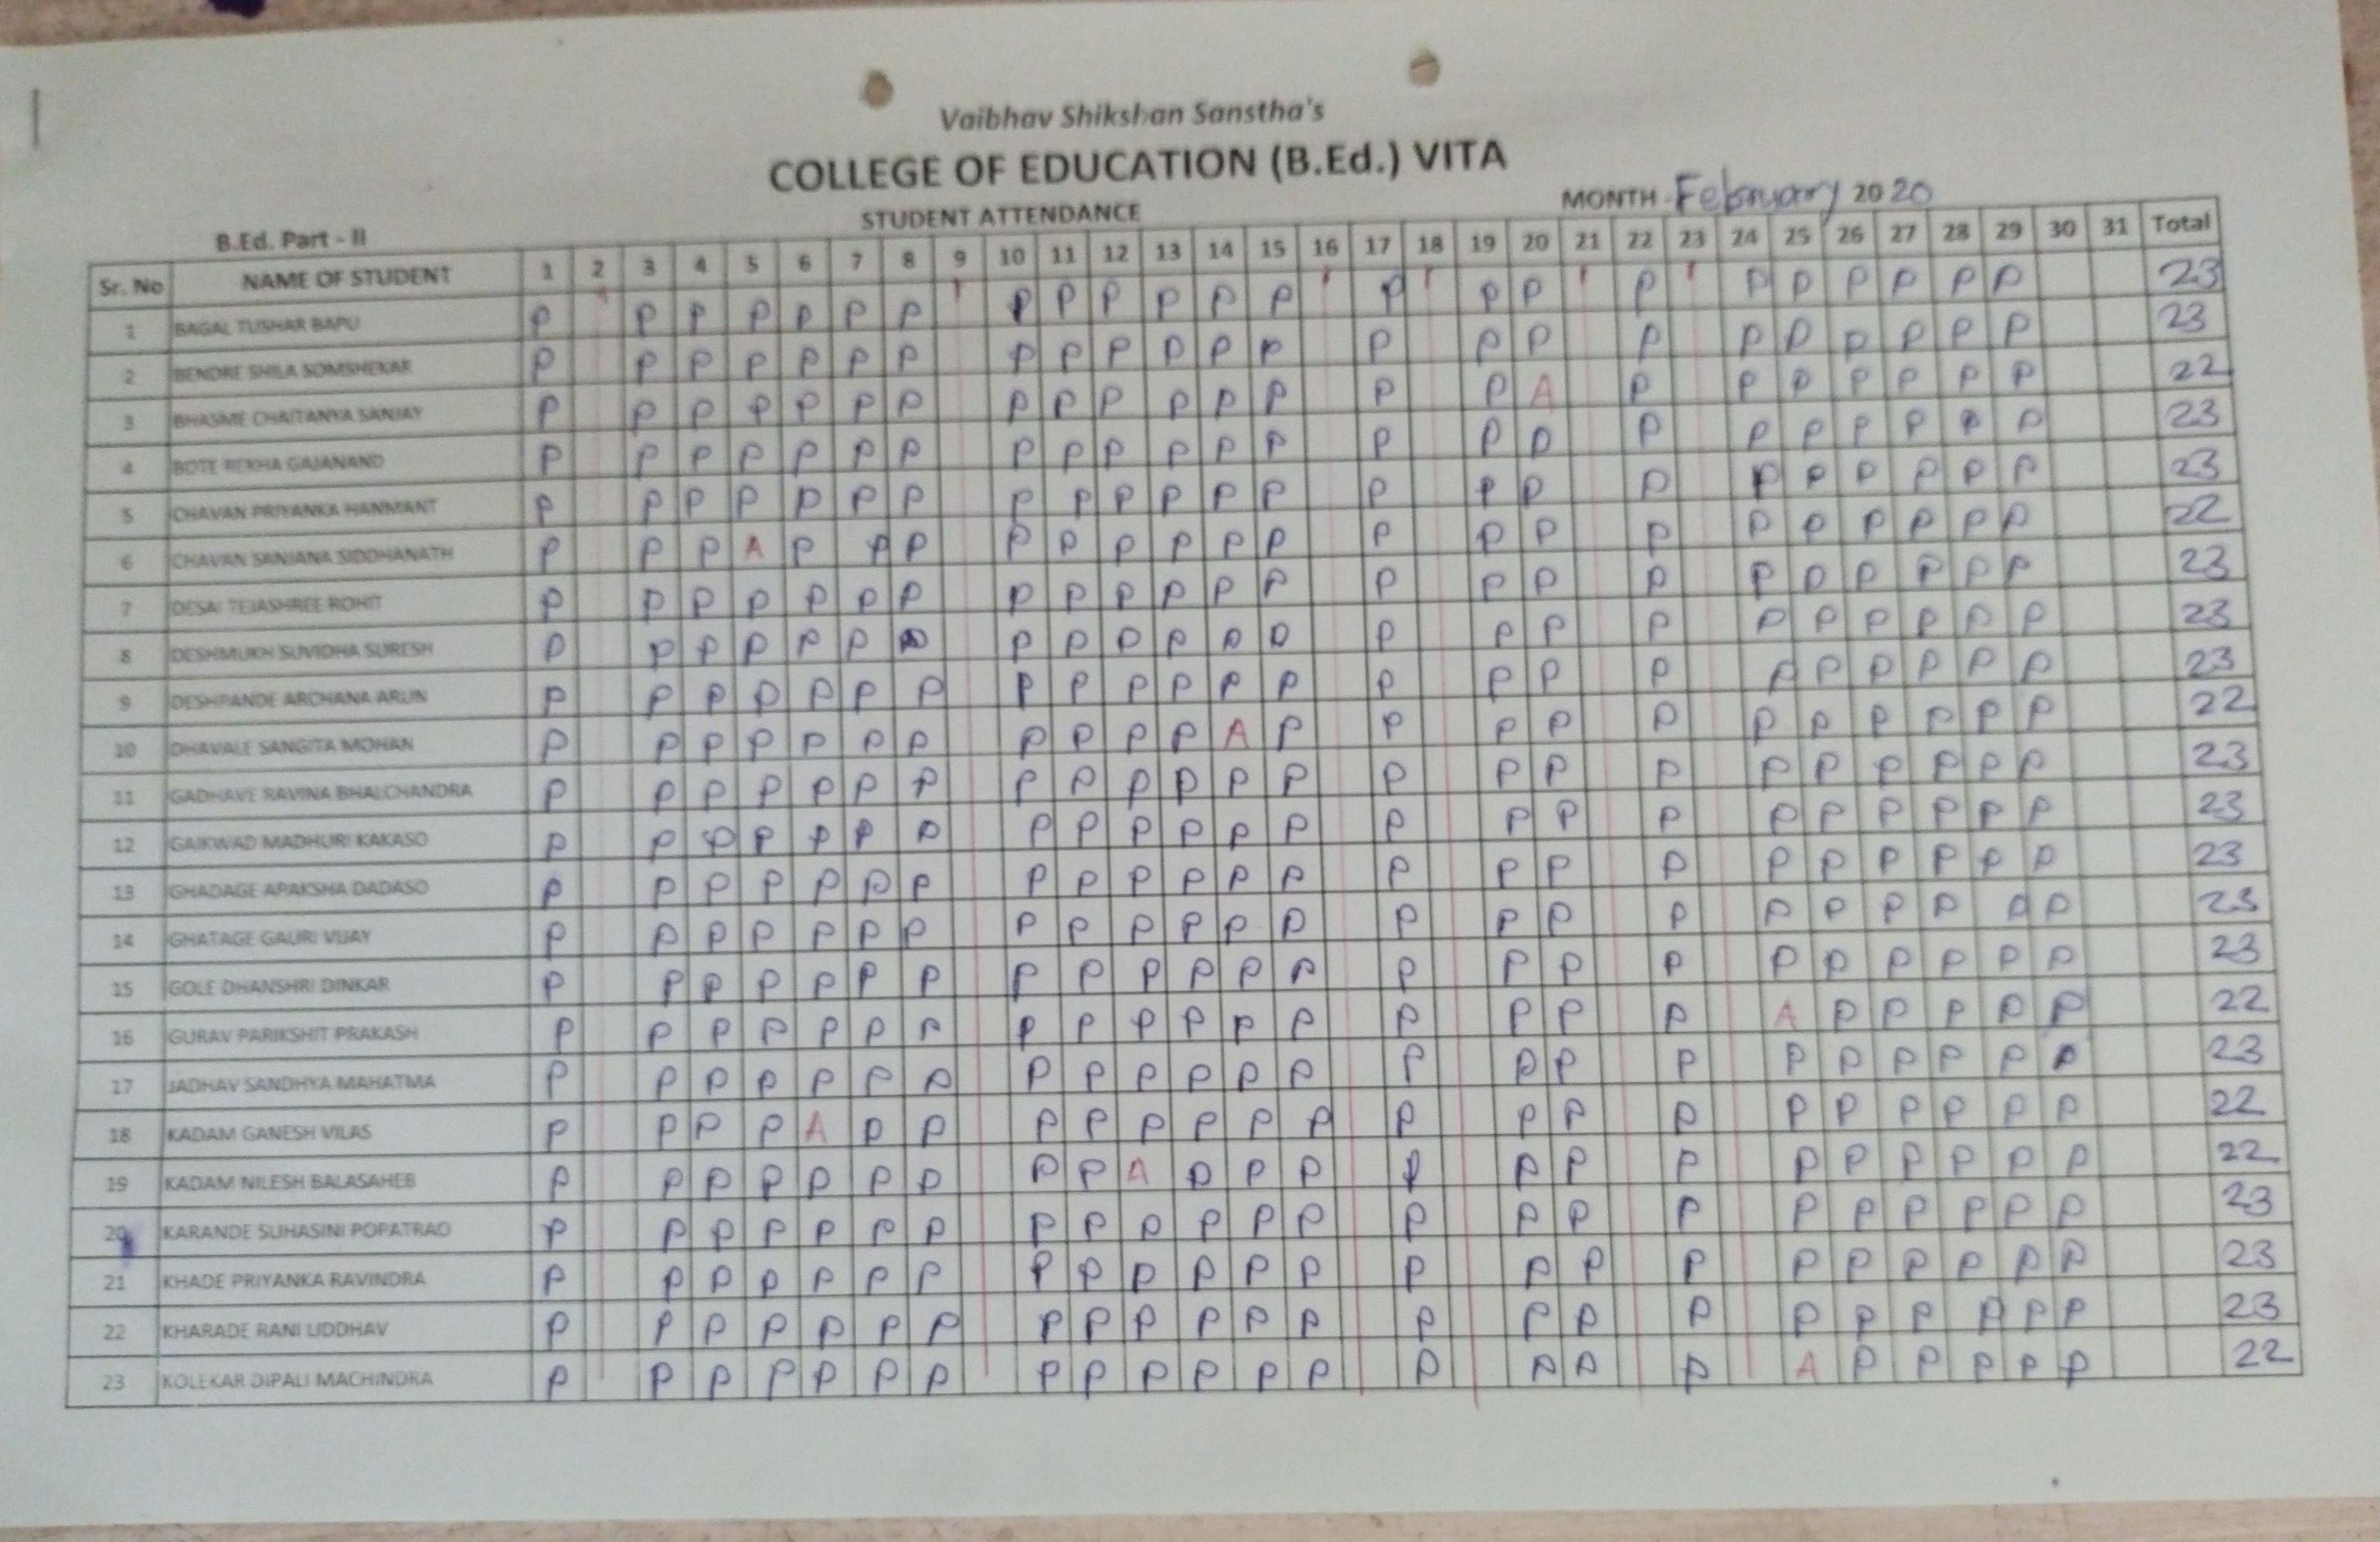 Vaibhav Shikshan Sanstha's
COLLEGE OF EDUCATION (B.Ed.) VITA
B.Ed. Part - II STUDENT ATTENDANCE MONTH - February 2020
Sr. No NAME OF STUDENT 1 2 3 4 5 6 7 8 9 10 11 12 13 14 15 16 17 18 19 20 21 22 23 24 25 26 27 28 29 30 31 Total
1 BAGAL TUSHAR BAPU P P P P P P P P P P P P P P P P P P P P P P P 23
2 BENDRE SHILA SOMSHEKAR P P P P P P P P P P P P P P P P P P P P P P P 23
3 BHASME CHAITANYA SANJAY P P P P P P P P P P P P P P P A P P P P P P P 22
4 BOTE REKHA GAJANAND P P P P P P P P P P P P P P P P P P P P P P P 23
5 CHAVAN PRIYANKA HANMANT P P P P P P P P P P P P P P P P P P P P P P P 23
6 CHAVAN SANJANA SIDDHANATH P P P A P P P P P P P P P P P P P P P P P P P 22
7 DESAI TEJASHREE ROHIT P P P P P P P P P P P P P P P P P P P P P P P 23
8 DESHMUKH SUVIDHA SURESH P P P P P P P P P P P P P P P P P P P P P P P 23
9 DESHPANDE ARCHANA ARUN P P P P P P P P P P P P P P P P P P P P P P P 23
10 DHAVALE SANGITA MOHAN P P P P P P P P P P P A P P P P P P P P P P P 22
11 GADHAVE RAVINA BHALCHANDRA P P P P P P P P P P P P P P P P P P P P P P P 23
12 GAIKWAD MADHURI KAKASO P P P P P P P P P P P P P P P P P P P P P P P 23
13 GHADAGE APAKSHA DADASO P P P P P P P P P P P P P P P P P P P P P P P 23
14 GHATAGE GAURI VIJAY P P P P P P P P P P P P P P P P P P P P P P P 23
15 GOLE DHANSHRI DINKAR P P P P P P P P P P P P P P P P P P P P P P P 23
16 GURAV PARIKSHIT PRAKASH P P P P P P P P P P P P P P P P P A P P P P P 22
17 JADHAV SANDHYA MAHATMA P P P P P P P P P P P P P P P P P P P P P P P 23
18 KADAM GANESH VILAS P P P P A P P P P P P P P P P P P P P P P P P 22
19 KADAM NILESH BALASAHEB P P P P P P P P P A P P P P P P P P P P P P P 22
20 KARANDE SUHASINI POPATRAO P P P P P P P P P P P P P P P P P P P P P P P 23
21 KHADE PRIYANKA RAVINDRA P P P P P P P P P P P P P P P P P P P P P P P 23
22 KHARADE RANI UDDHAV P P P P P P P P P P P P P P P P P P P P P P P 23
23 KOLEKAR DIPALI MACHINDRA P P P P P P P P P P P P P P P P P A P P P P P 22